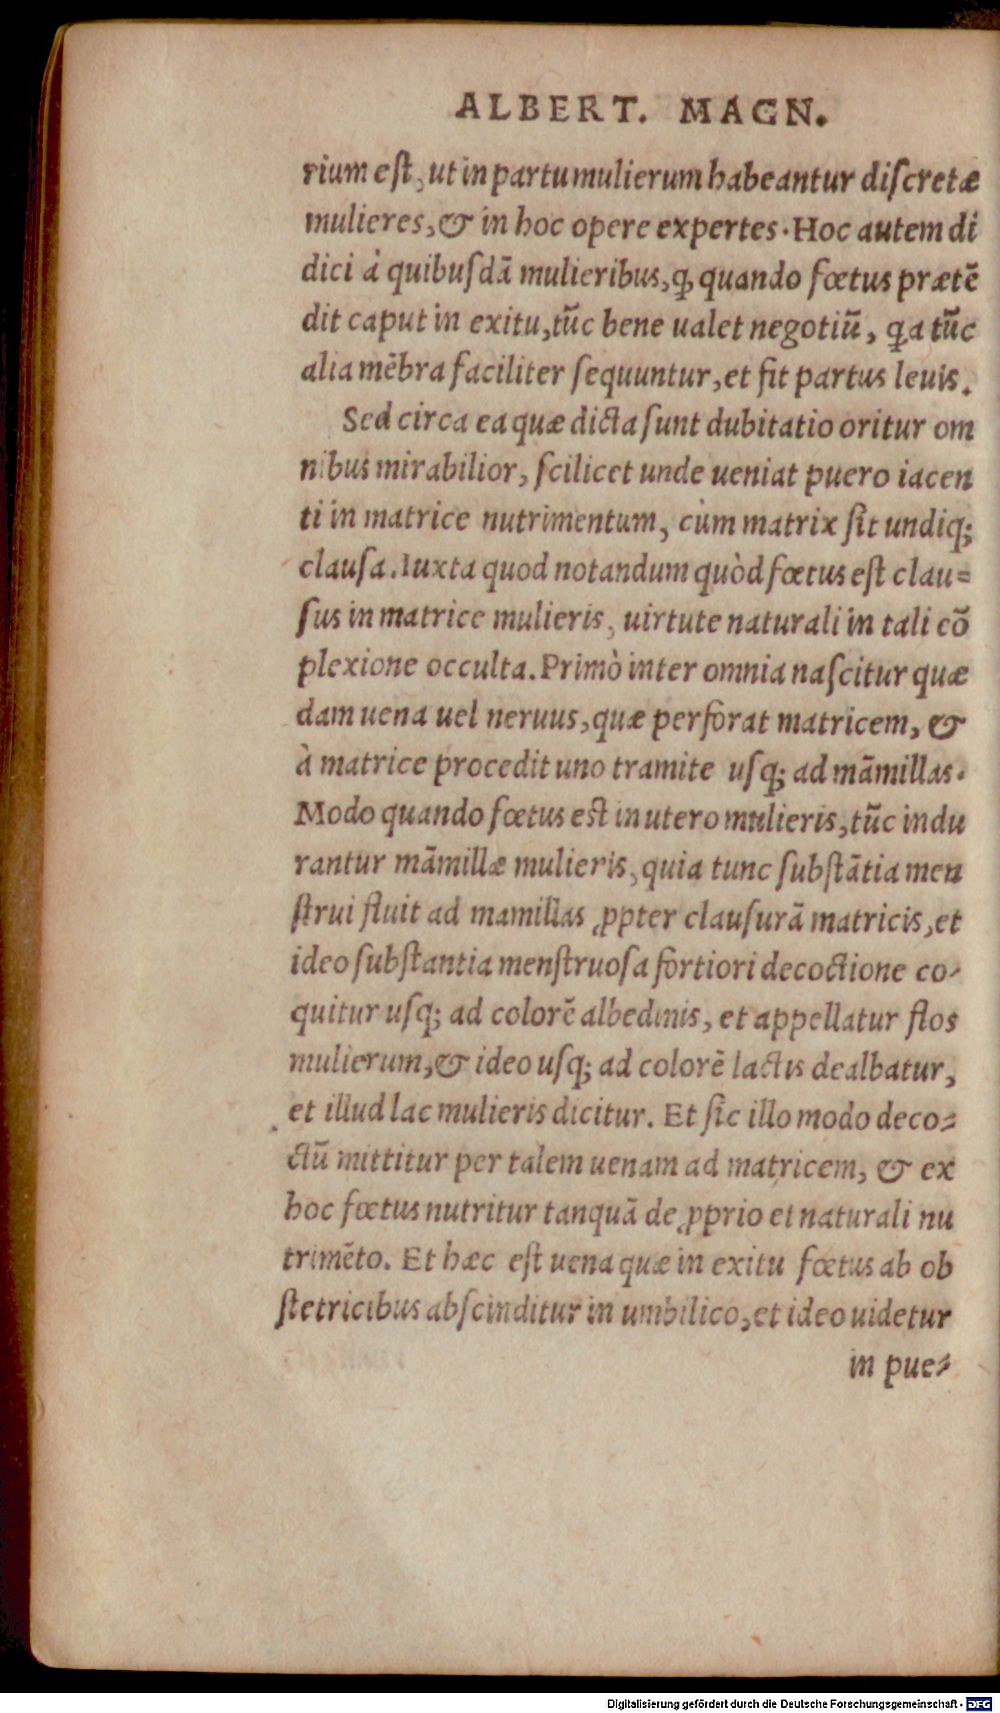 ALBERT. MAGN.
rium eſt, ut in partu mulierum habeantur diſcretæ
mulieres, & in hoc opere expertes. Hoc autem di
dici à quibuſdā mulieribus, ꝙ quando fœtus prætē
dit caput in exitu, tūc bene ualet negotiū, ꝗa tūc
alia mēbra faciliter ſequuntur, et fit partus leuis.
Sed circa ea quæ dicta ſunt dubitatio oritur om
nibus mirabilior, ſcilicet unde ueniat puero iacen
ti in matrice nutrimentum, cùm matrix ſit undiq;
clauſa. Iuxta quod notandum quòd fœtus eſt clau=
ſus in matrice mulieris, uirtute naturali in tali cō
plexione occulta. Primò inter omnia naſcitur quæ
dam uena uel neruus, quæ perforat matricem, &
à matrice procedit uno tramite uſq; ad māmillas.
Modo quando fœtus eſt in utero mulieris, tūc indu
rantur māmillæ mulieris, quia tunc ſubſtātia men
ſtrui fluit ad mamillas ꝓpter clauſurā matricis, et
ideo ſubſtantia menſtruoſa fortiori decoctione co-
quitur uſq; ad colorē albedinis, et appellatur flos
mulierum, & ideo uſq; ad colorē lactis dealbatur,
et illud lac mulieris dicitur. Et ſic illo modo deco=
ctū mittitur per talem uenam ad matricem, & ex
hoc fœtus nutritur tanquā de ꝓprio et naturali nu
trimēto. Et hæc eſt uena quæ in exitu fœtus ab ob
ſtetricibus abſcinditur in umbilico, et ideo uidetur
in pue=
Digitalisierung gefördert durch die Deutsche Forschungsgemeinschaft - DFG